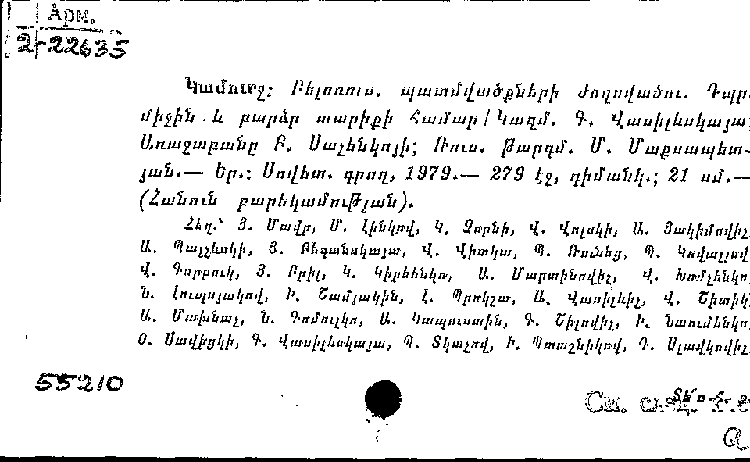 Арм.
2-22635
Կամուրջ: Բելոռուս. պատմվածքների ժողովածու. Դպր.
միջին և բարձր տարիքի համար/Կազմ. Գ. Վասիլևսկայա;
Առաջաբանը Բ. Սաչենկոյի; Ռուս. թարգմ. Մ. Մաքսապետ-
յան.— Եր.: Սովետ. գրող, 1979.— 279 էջ, դիմանկ.; 21 սմ.—
(Հանուն բարեկամության).
Հեղ.՝ Յ. Մավր, Մ. Լինկով, Կ. Չորնի, Վ. Վոլսկի, Ա. Յակիմովիչ
Ա. Պալչևսկի, Յ. Վ. Վիտկա, Պ. Կովալյով
Վ. Գորբուկ, Յ. Բրիլ, Կ. Կիրեենկո, Ա. Մարտինովիչ, Վ. Խոմչենկո
Ն. Ի. Շամյակին, Լ. Պրոկշա, Ա. Վասիլևիչ, Վ. Շիտիկ
Ա. Մասինաչ, Ն. Գոմուլկո, Ա. Կապուստին, Գ. Շիլովիչ, Ի. Նաումենկո
Օ. Սավիցկի, Գ. Վասիլևսկայա, Պ. Տկաչով, Ի. Պտաշնիկով, Գ. Սլավկովիչ
55210
См.